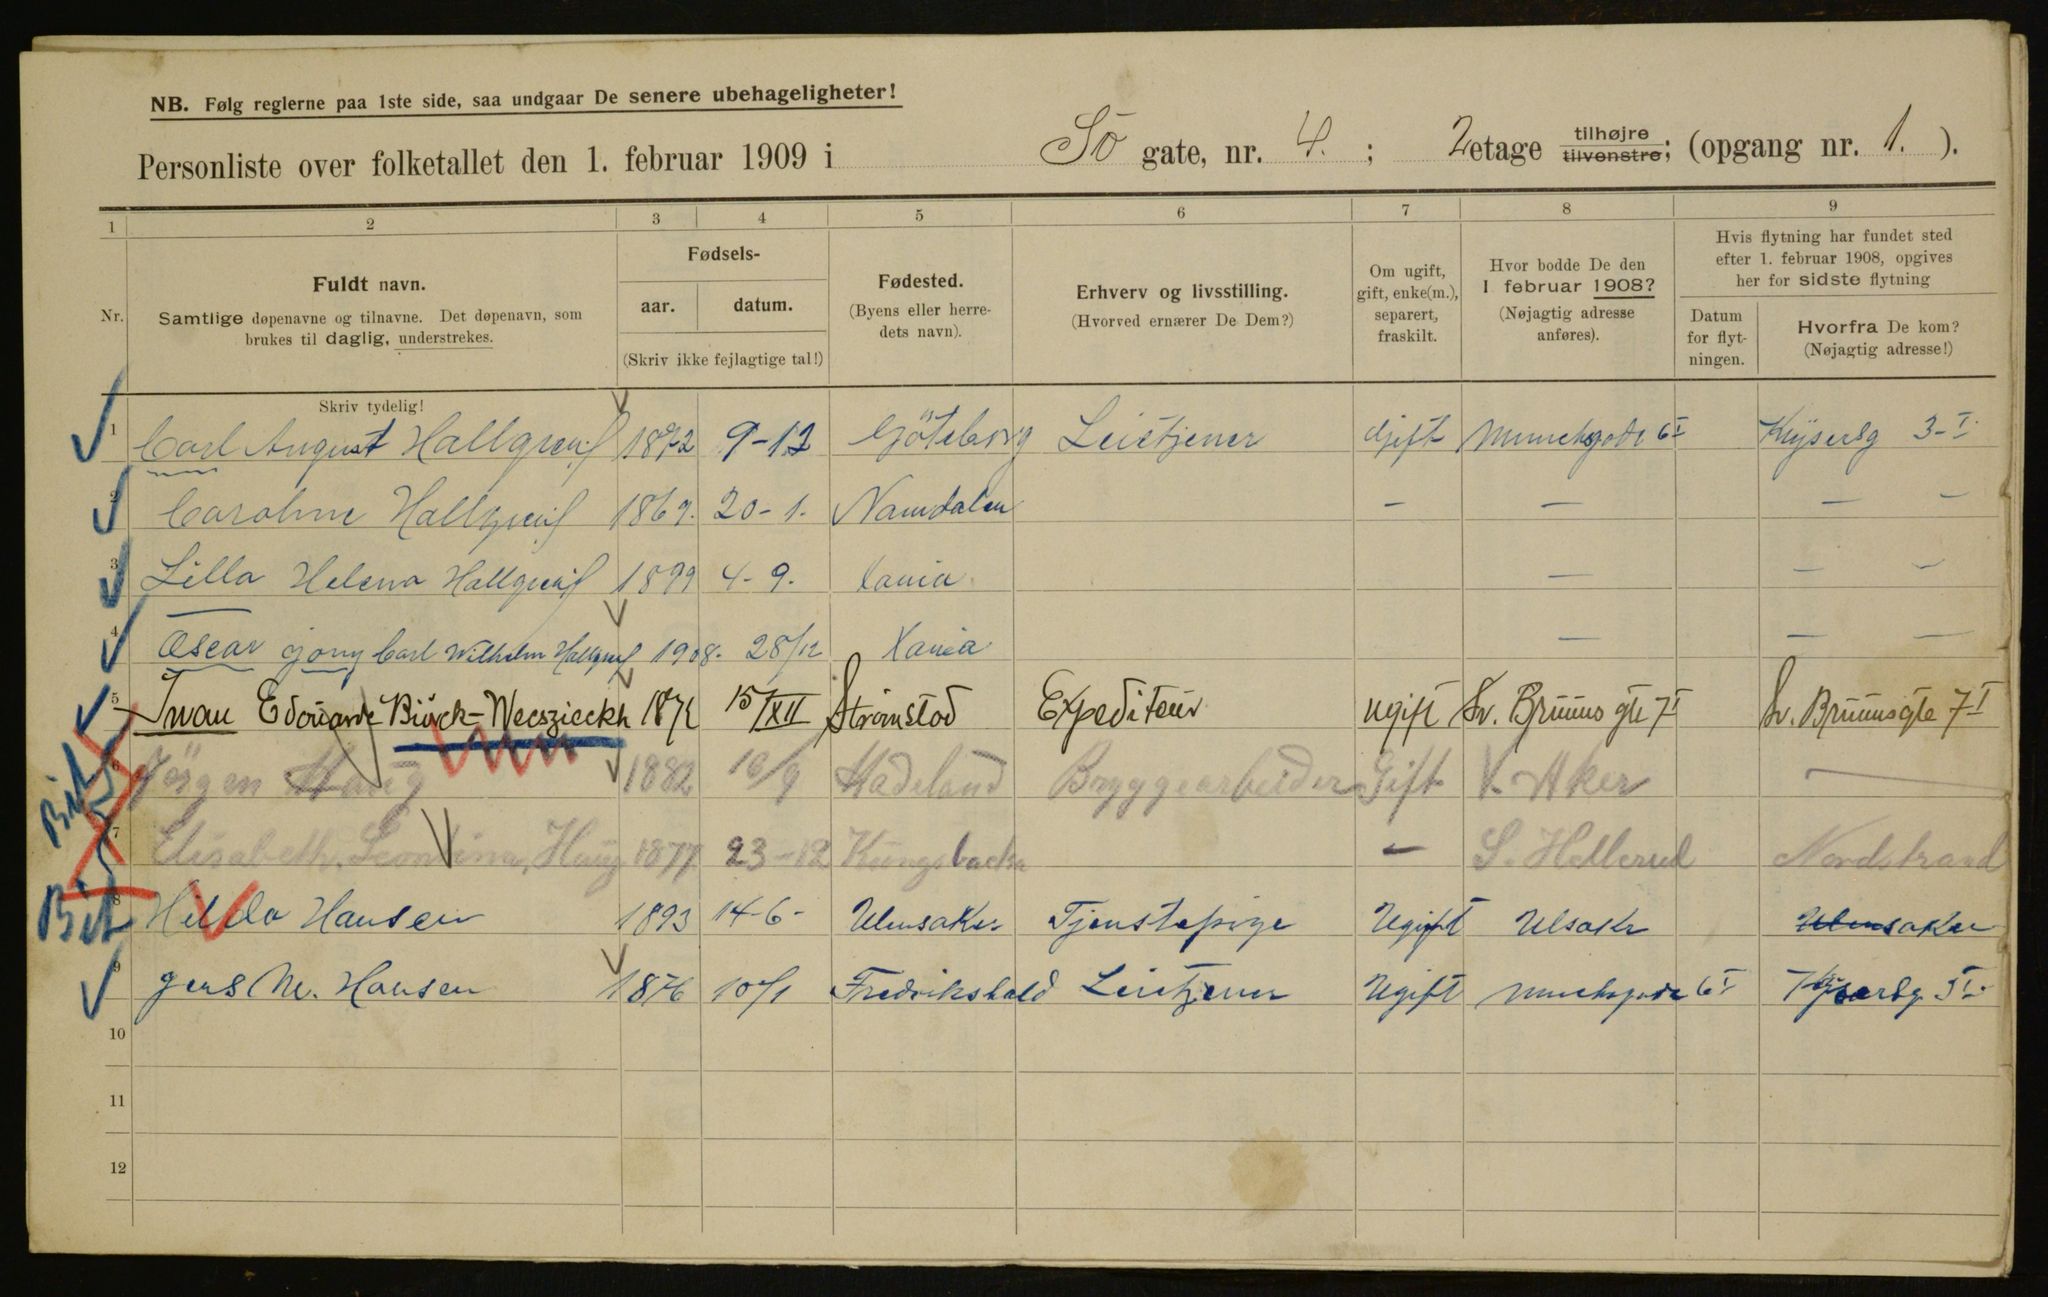 NB. Følg reglerne paa 1ste side, saa undgaar De senere ubehageligheter!
Personliste over folketallet den 1. februar 1909 i Sö gate, nr. 4. ; 2 etage tilhøjre tilvenstre; (opgang nr. 1. ).
1 2 3 4 5 6 7 8 9
Nr.
Fuldt navn.
Samtlige døpenavne og tilnavne. Det døpenavn, som
brukes til daglig, understrekes.
Skriv tydelig!
Fødsels-
aar. datum.
(Skriv ikke fejlagtige tal!)
Fødested.
(Byens eller herre-
dets navn).
Erhverv og livsstilling.
(Hvorved ernærer De Dem?)
Om ugift,
gift, enke(m.),
separert,
fraskilt.
Hvor bodde De den
1 februar 1908?
(Nøjagtig adresse
anføres).
Hvis flytning har fundet sted
efter 1. februar 1908, opgives
her for sidste flytning
Datum
for flyt-
ningen.
Hvorfra De kom?
(Nøjagtig adresse!)
1 Carl August Hallgren 1872 9-12 Göteborg Leietjener Gift Munchsgade 6 I Keysersg 3-I
2 Caroline Hallgren 1869. 20-1. Namdalen — — — —
3 Lilla Helena Hallgren 1899 4-9. Xania — — —
4 Oscar Jony Carl Wilhelm Hallgren 1908. 28/12 Xania — — —
5 Iwan Edouarde Biörck-Weeszieckh 1871 15/XII Strömstad Expediteur ugift Sv. Bruuns gte 7 I Sv. Bruunsgte 7 I
6 Jörgen Haug 1882 10/9 Hadeland Bryggearbeider Gift V. Aker —
7 Elisabeth Leontina, Haug 1877 23-12 Kungsbacka — S. Hellerud Nordstrand
8 Hilda Hansen 1893 14-6- Ulensaker Tjenstepige Ugift Ulsakr Ulensaker
9 Jens M. Hansen 1876 10/1 Fredrikshald Leietjener Ugift Munchsgade 6 I Keysersg 3 I
10
11
12